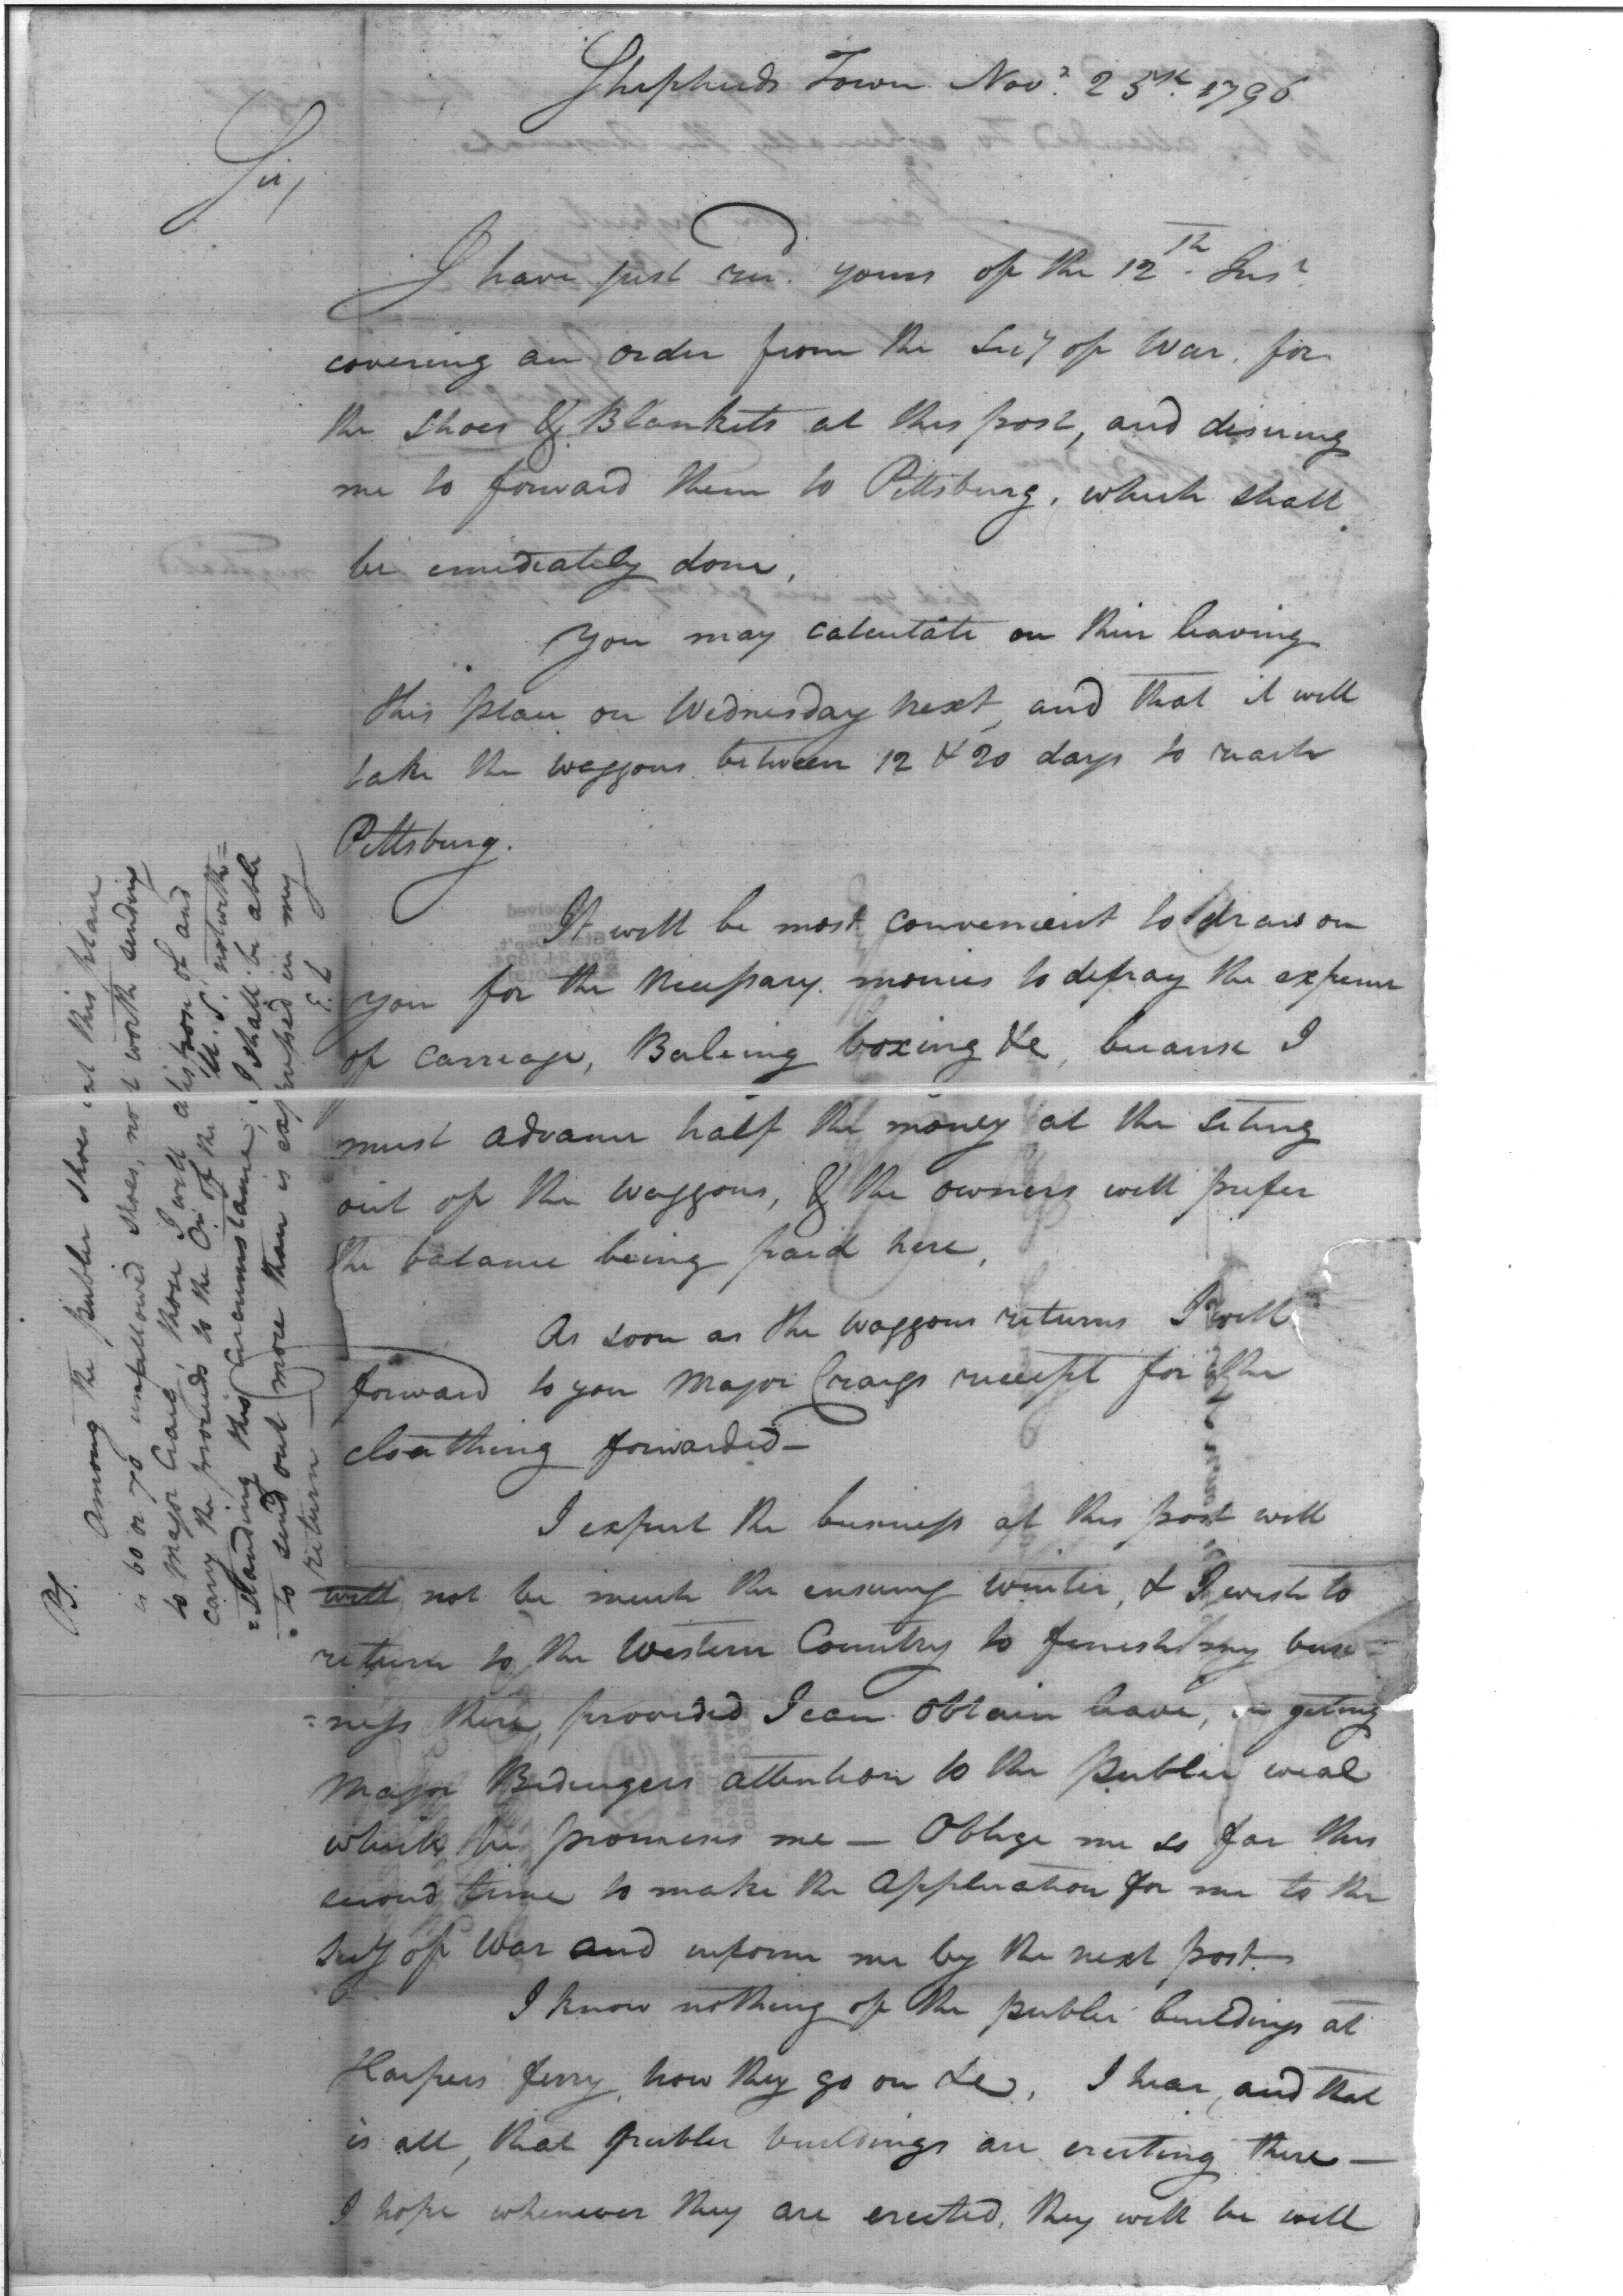 Shepherds Town Novr. 25th. 1796
Sir,
I have just recd. yours of the 12th. Inst.
covering an order from the Secy of War, for
the Shoes & Blankets at this post, and desiring
me to forward them to Pittsburg, which shall
be emediately done,
You may calculate on their leaving
this place on Wednesday next, and that it will
take the waggons between 12 & 20 days to reach
Pittsburg.
It will be most convenient to draw on
you for the necessary monies to defray the expense
of carriage, Baleing boxing &c, because I
must advance half the money at the seting
out of the waggons, & the owners will prefer
the balance being paid here,
As soon as the waggons returns I will
forward to you Major Craigs receipt for the
cloathing forwarded—
I expect the business at this post will
will not be much the ensuing winter, & I wish to
return to the Western Country to finish my busi=
=ness there, provided I can obtain leave, in geting
Major Bedingers attention to the public weal
which he promises me — Oblige me so far this
second time to make the application for me to the
Secy of War and inform me by the next post.
I know nothing of the public buildings at
Harpers ferry, how they go on &c. I hear, and that
is all, that public buildings are erecting there—
I hope whenever they are erected, they will be well
PS. Among the public shoes at this place
is 60 or 70 unfallowed shoes, not worth sending
to Major Craig, those I will dispose of and
carry the proceeds to the Cr. of the U. S. notwith=
=standing this Circumstance, I shall be able
to send out more than is expressed in my
return — E. L